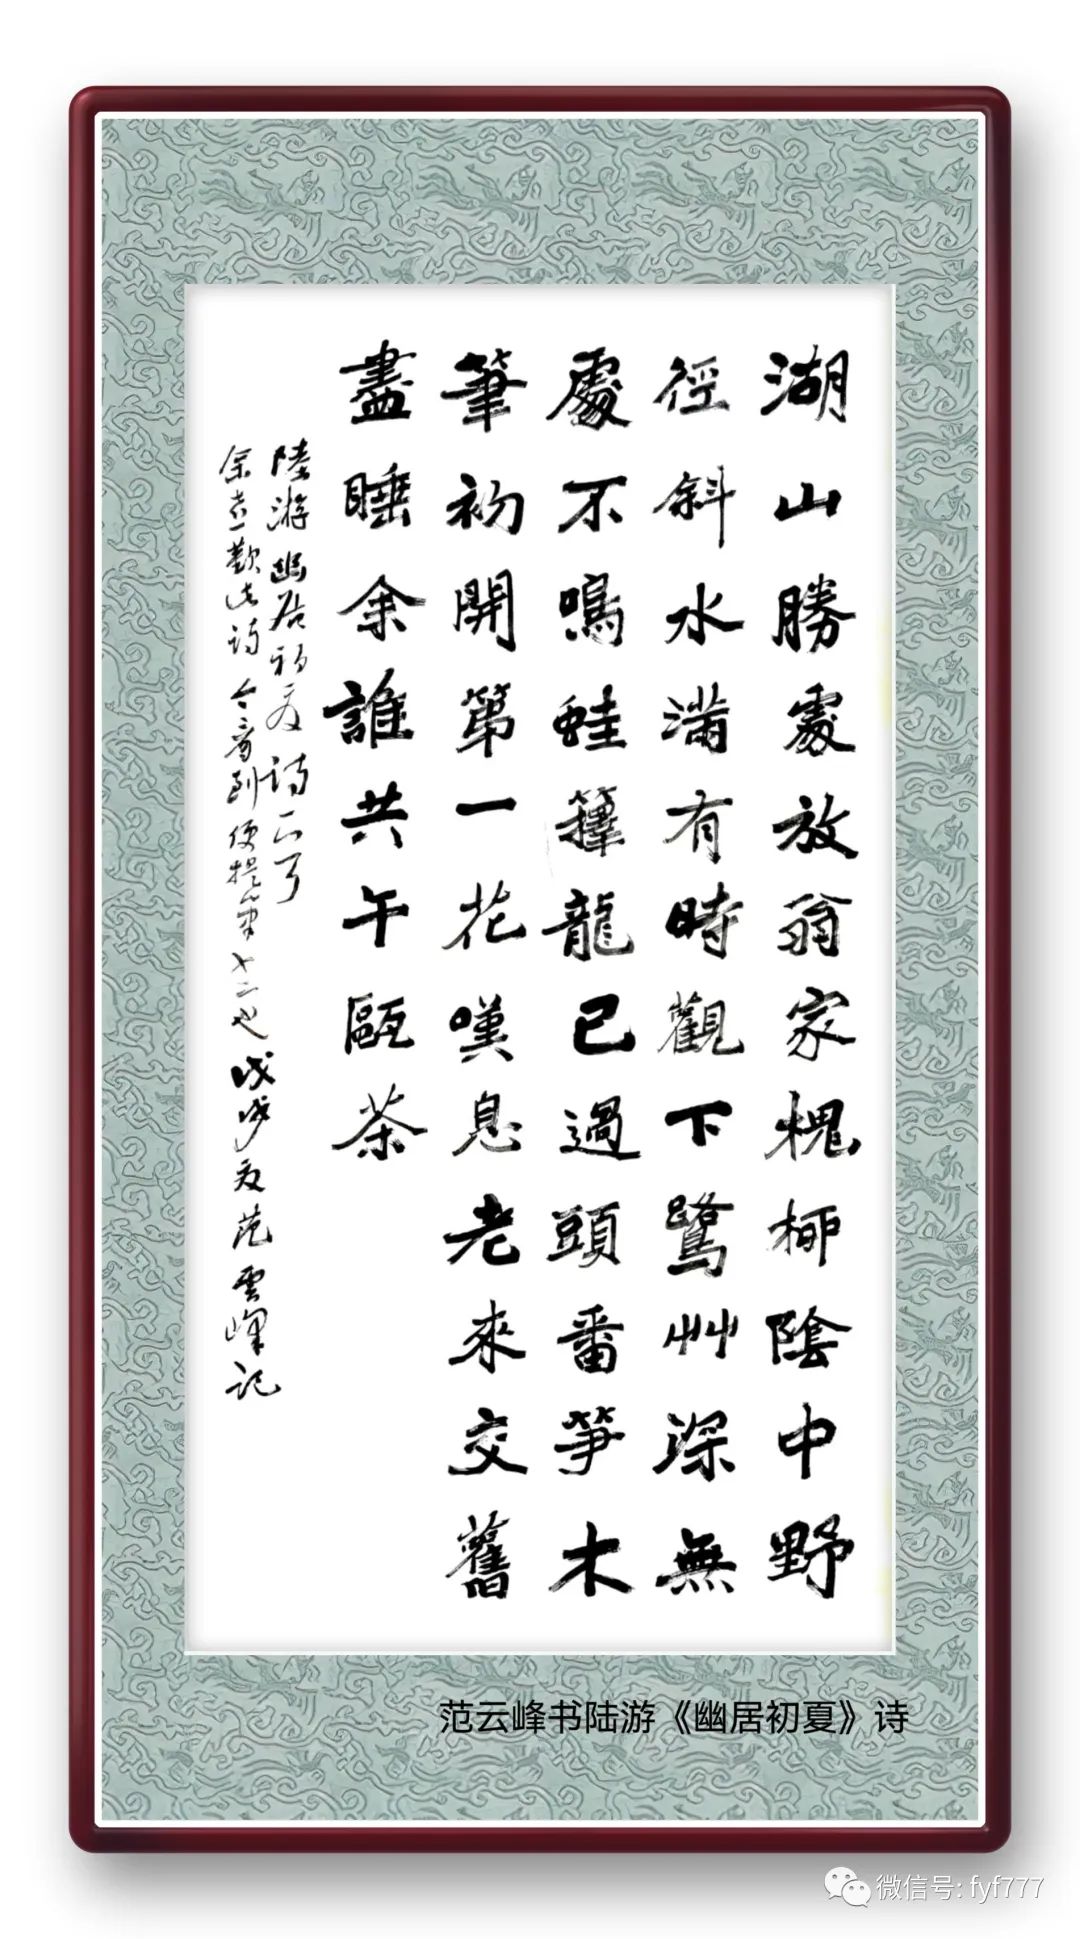 湖山勝處放翁家槐桺陰中野
徑斜水滿有時觀下鷺艸深無
處不鳴蛙籜龍已過頭番笋木
筆初開第一花嘆息老來交舊
盡睡余誰共午甌茶
陸游幽居初夏诗
余喜歡此诗今看到便提筆戊戌夏范雲峰記
范云峰书陆游《幽居初夏》诗
微信号: fyf777